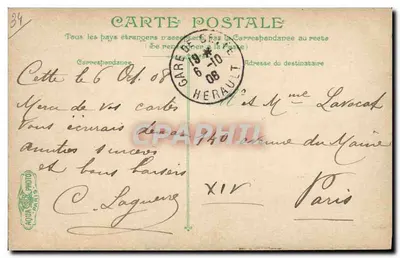 34
CARTE POSTALE
Tous les pays étrangers n'acceptent pas la Correspondance au recto
(Se renseigner à la Poste)
Correspondance
Adresse du destinataire
GARE DE CETTE
19 *
6 -10
08
HERAULT
Cette le 6 Oct. 08
Merci de vos cartes
Vous écrirais demain
amitiés sincères
et bons baisers
C. Laguerre
Mr et Mme Lavocat
140 avenue du Maine
XIV
Paris